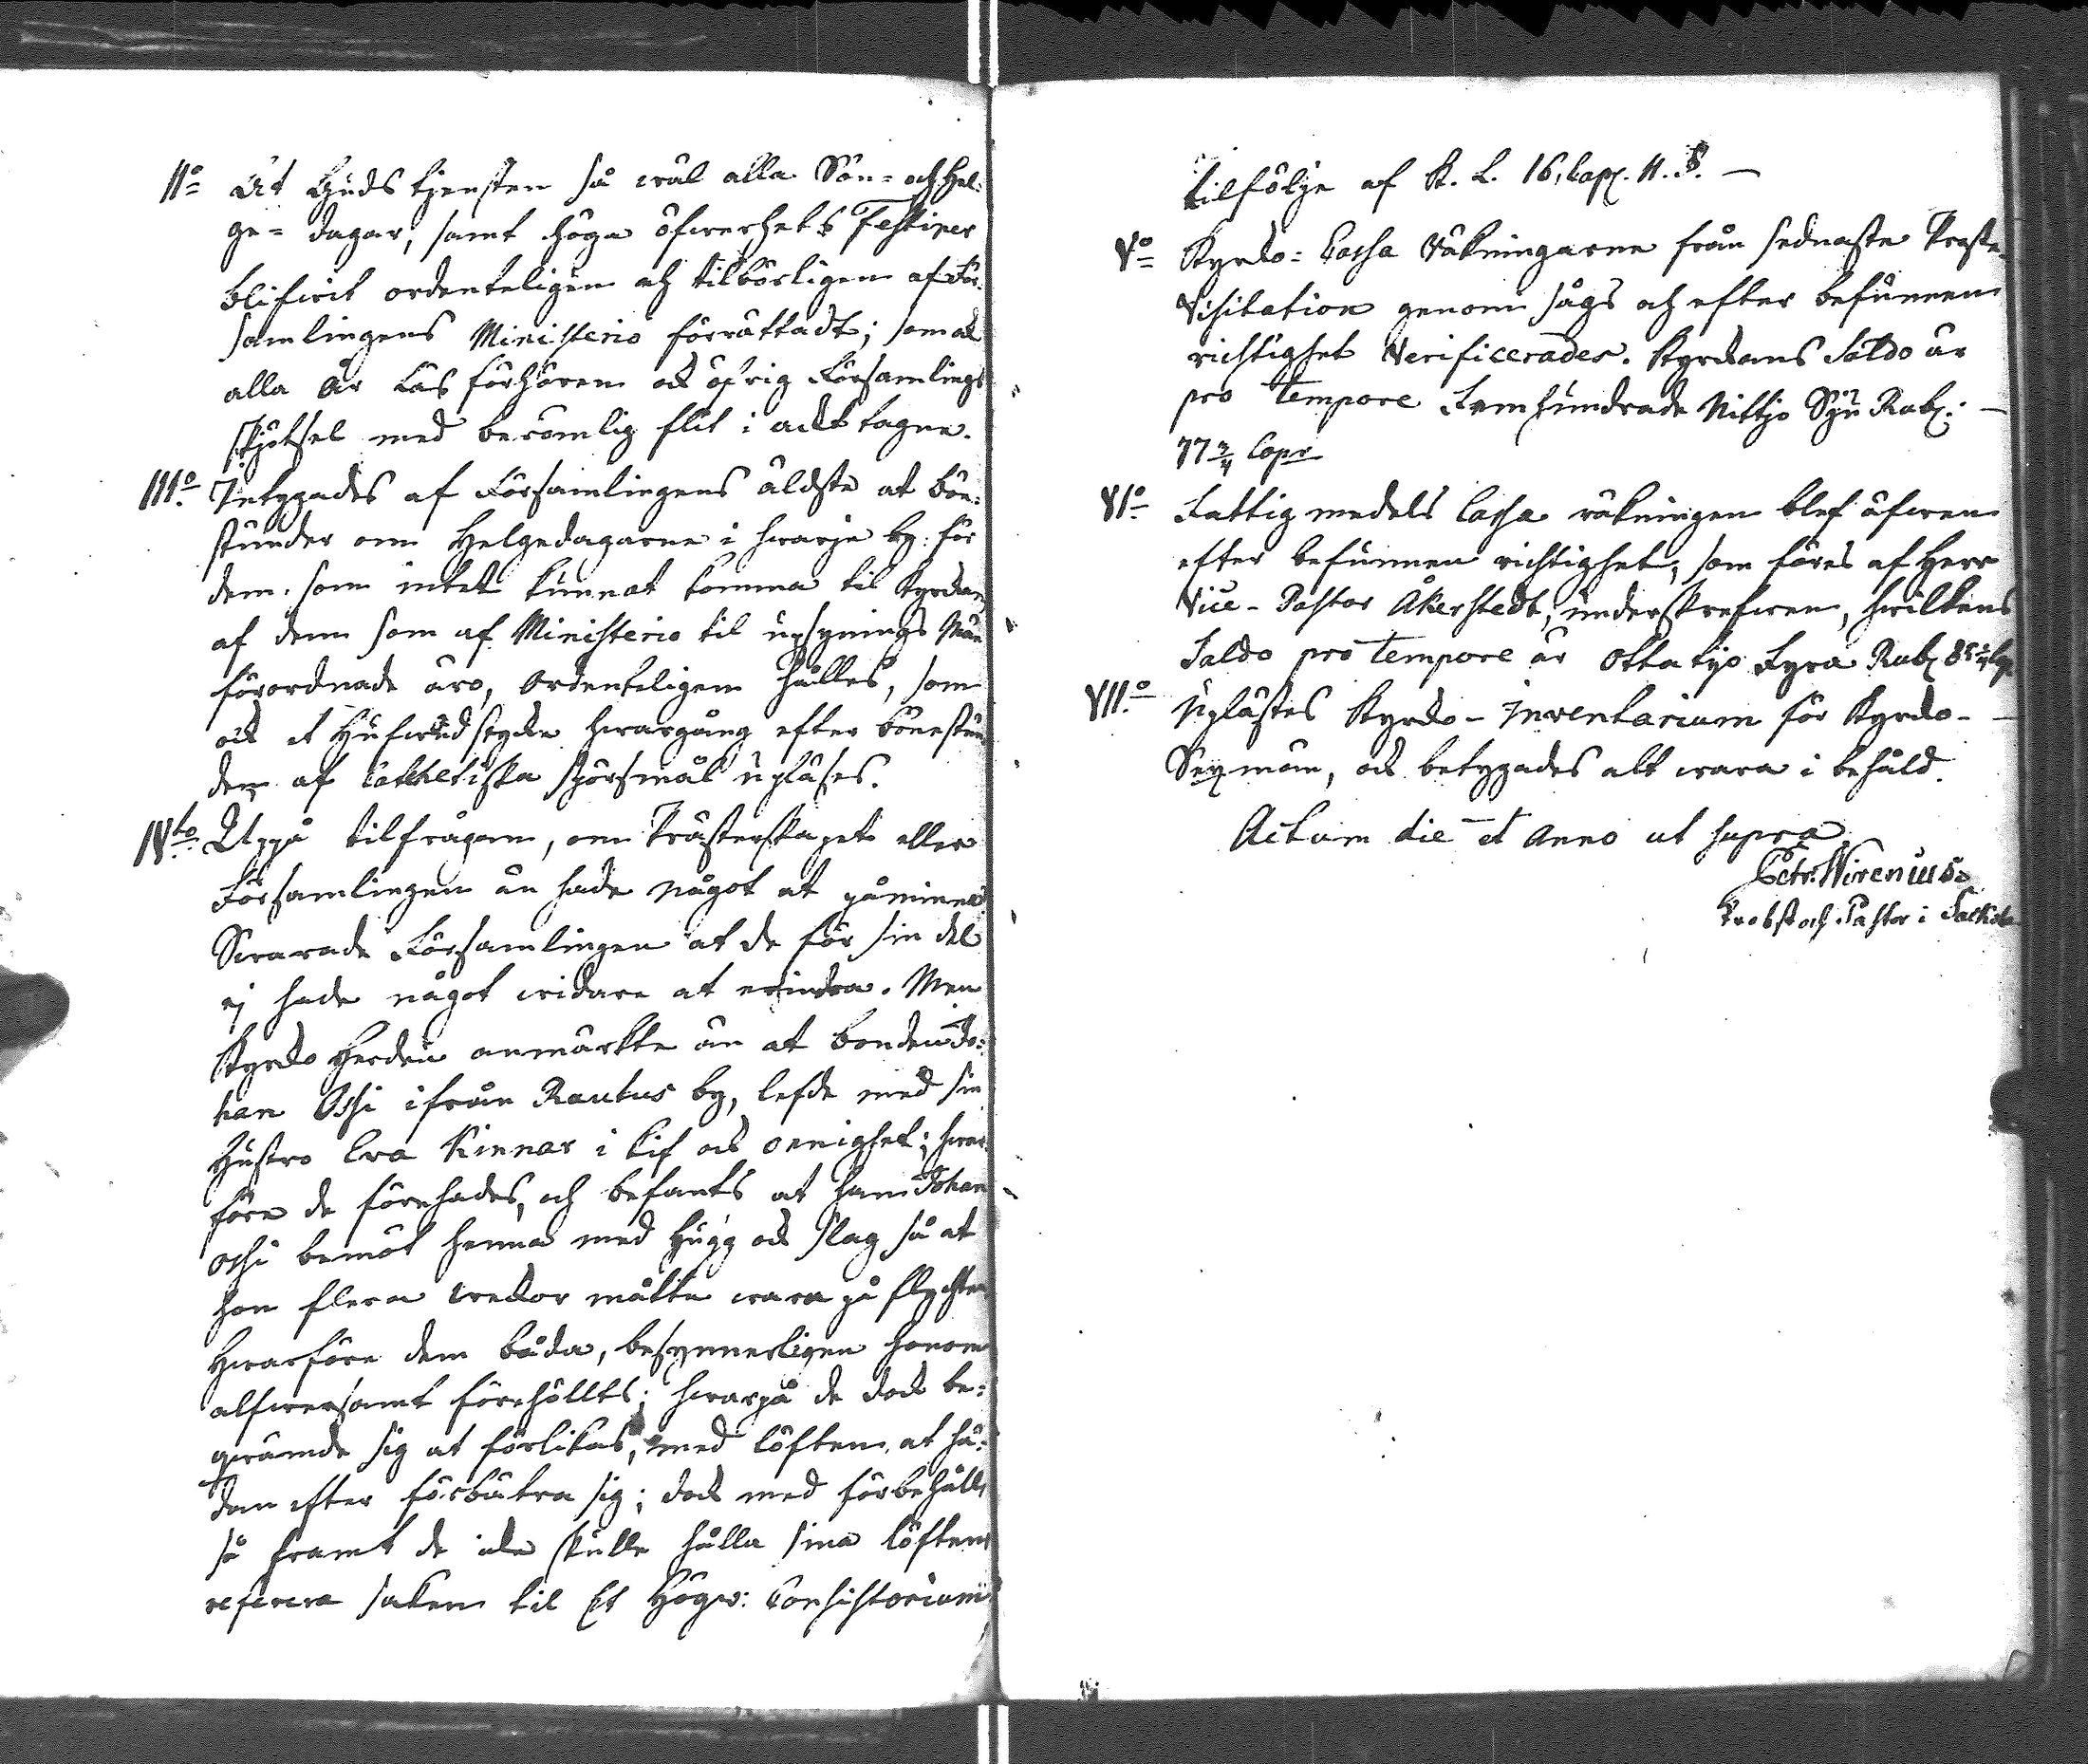 IIo At Guds tjensten så wäl alla Sön- och Hel-
ge- dagar, samt höga öfwerhets Festiner
blifwit ordenteligen och tilbörligen af För-
samlingens Ministerio förrättadt; som ock
alla år Läs förhören och öfrig Församlings
skjötsel med berömlig flit i ackt tagne.
IIIo. Intygades af Församlingens äldste at böne-
stunder om Helgedagarne i hwarje by för
dem som intet kunnat komma til Kyrckan,
af dem som af Ministerio til upsynings Män
förordnade äro, Ordenteligen hålles, som
ock et Hufwudstycke hwargång efter bönestun-
den af Catchetiska spörsmål upläses.
IVto. Uppå tilfrågan, om Prästerskapet eller
Församlingen än hade något at påminna
Swarade Församlingen at de för sin del
ej hade något widare at erindra. Men
Kyrcko Herden anmärkte än at bonden Jo-
han Ossi ifrån Rautus by, lefde med sin
Hustro Eva Kinnar i kif och oenighet; hwar-
före de förehades, och befants at han Johan
Ossi bemöt henne med Hugg och slag så at
hon flera weckor måtte wara på flychten
Hwarföre dem båda, besynnerligen honom
alfwersamt förehöllts; hwarpå de dock be-
qwämde sig at förlikas, med löften at hä-
dan efter förbättra sig; dock med förbehåll,
så framt de icke skulle hålla sina löften
referera saken til Et Högw: Consistorium
tilfölje af K. L. 16, Cap. 11. §. —
Vo Kyrcko- Cassa Räkningarne från sednaste Proste
Visitation genom sågs och efter befunnen
richtighet Verificerades. Kyrckans Saldo är
pro Tempore Femhundrade Nittjo Sju Rub. —
77 3/4 Cop
VIo Fattig medels Cassa räkningen blef äfwen
efter befunnen richtighet, som föres af Herr
Vice-Pastor Åkerstedt, underskrefwen, hwilkens
Saldo pro Tempore är Ottatijo Fyra Rub
VII.o Uplästes Kyrcko-Inventarium för Kyrcko- —
Sexmän, och betygades alt wara i behåld.
Actum die et Anno ut supra
Petr. Wirenius
Probst och Pastor i